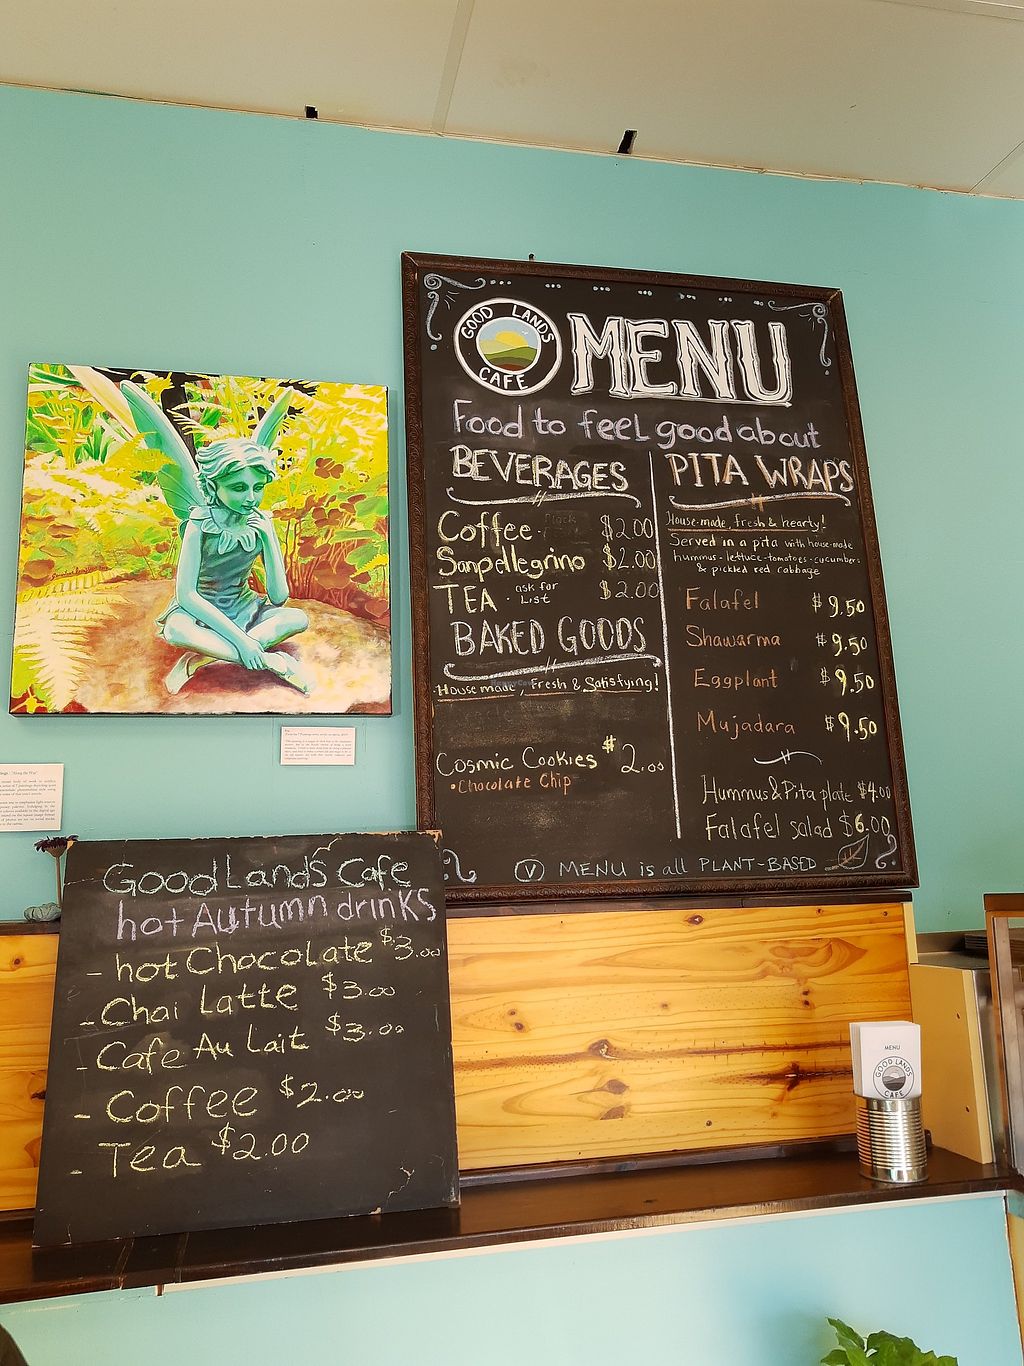 GOOD LANDS
CAFE
MENU
Food to feel good about
BEVERAGES
Coffee $2.00
Sanpellegrino $2.00
TEA ask for List $2.00
BAKED GOODS
House made, Fresh & Satisfying!
Cosmic Cookies $2.00
• Chocolate Chip
PITA WRAPS
House-made, fresh & hearty!
Served in a pita with house-made
hummus - lettuce - tomatoes - cucumbers
& pickled red cabbage
Falafel $9.50
Shawarma $9.50
Eggplant $9.50
Mujadara $9.50
Hummus & Pita plate $4.00
Falafel salad $6.00
V MENU is all PLANT-BASED
Good Lands Cafe
hot Autumn drinks
- hot Chocolate $3.00
- Chai Latte $3.00
- Cafe Au Lait $3.00
- Coffee $2.00
- Tea $2.00
MENU
GOOD LANDS
CAFE